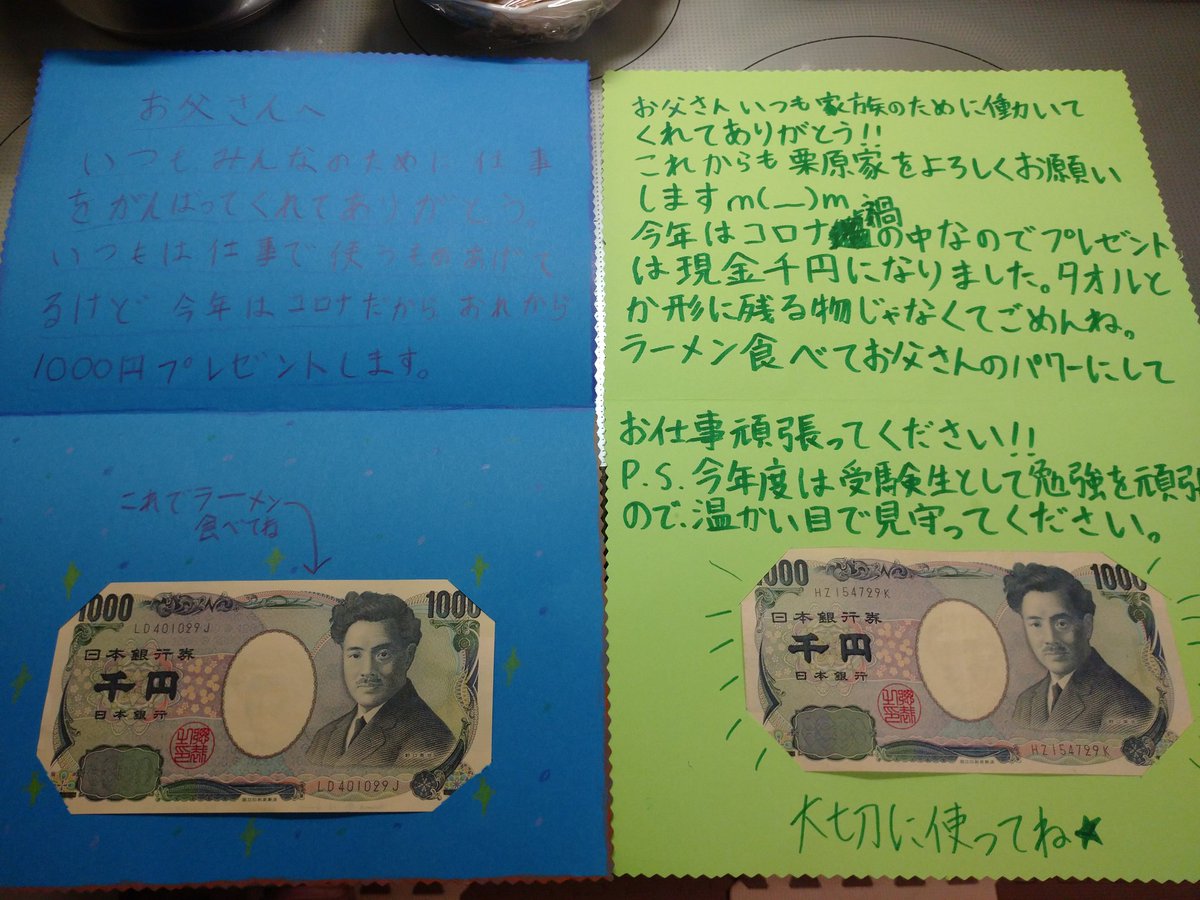 お父さんへ
いつもみんなのために仕事
をがんばってくれてありがとう。
いつもは仕事で使うものあげて
るけど 今年はコロナだから おれから
1000円プレゼントします。
これでラーメン
食べてね
1000
1000
LD401029J
日本銀行券
千円
日本銀行
野口英世
LD401029J
国立印刷局製造
お父さんいつも家族のために働いて
くれてありがとう!!
これからも栗原家をよろしくお願い
しますm(__)m
今年はコロナ禍の中なのでプレゼント
は現金千円になりました。タオルと
か形に残る物じゃなくてごめんね。
ラーメン食べてお父さんのパワーにして
お仕事頑張ってください!!
P.S.今年度は受験生として勉強を頑張
ので、温かい目で見守ってください。
1000
1000
HZ154729K
日本銀行券
千円
日本銀行
野口英世
HZ154729K
国立印刷局製造
大切に使ってね★